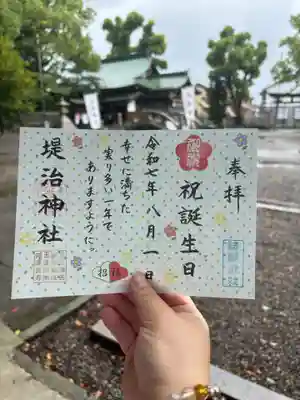 奉拝
祝誕生日
令和七年八月一日
幸せに満ちた
実り多い一年で
ありますように。
堤治神社
招福